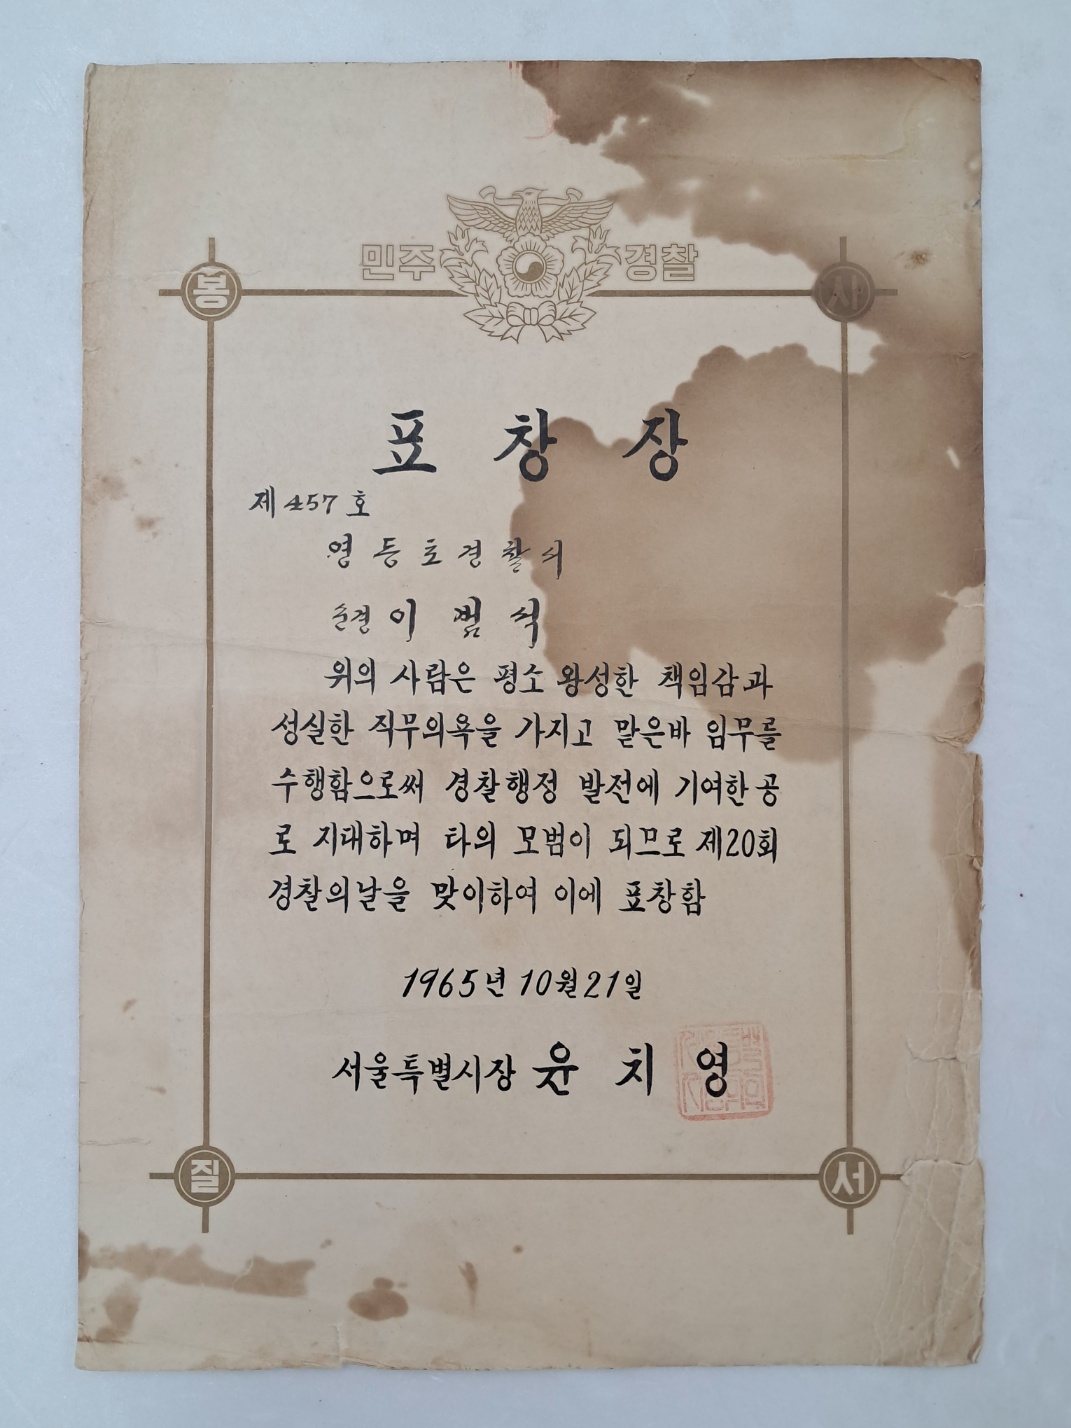 민주 경찰
봉 사
표창장
제457호
영등포경찰서
순경 이범석
위의 사람은 평소 왕성한 책임감과
성실한 직무의욕을 가지고 맡은바 임무를
수행함으로써 경찰행정 발전에 기여한 공
로 지대하며 타의 모범이 되므로 제20회
경찰의날을 맞이하여 이에 표창함
1965년 10월 21일
서울특별시장 윤치영
질 서